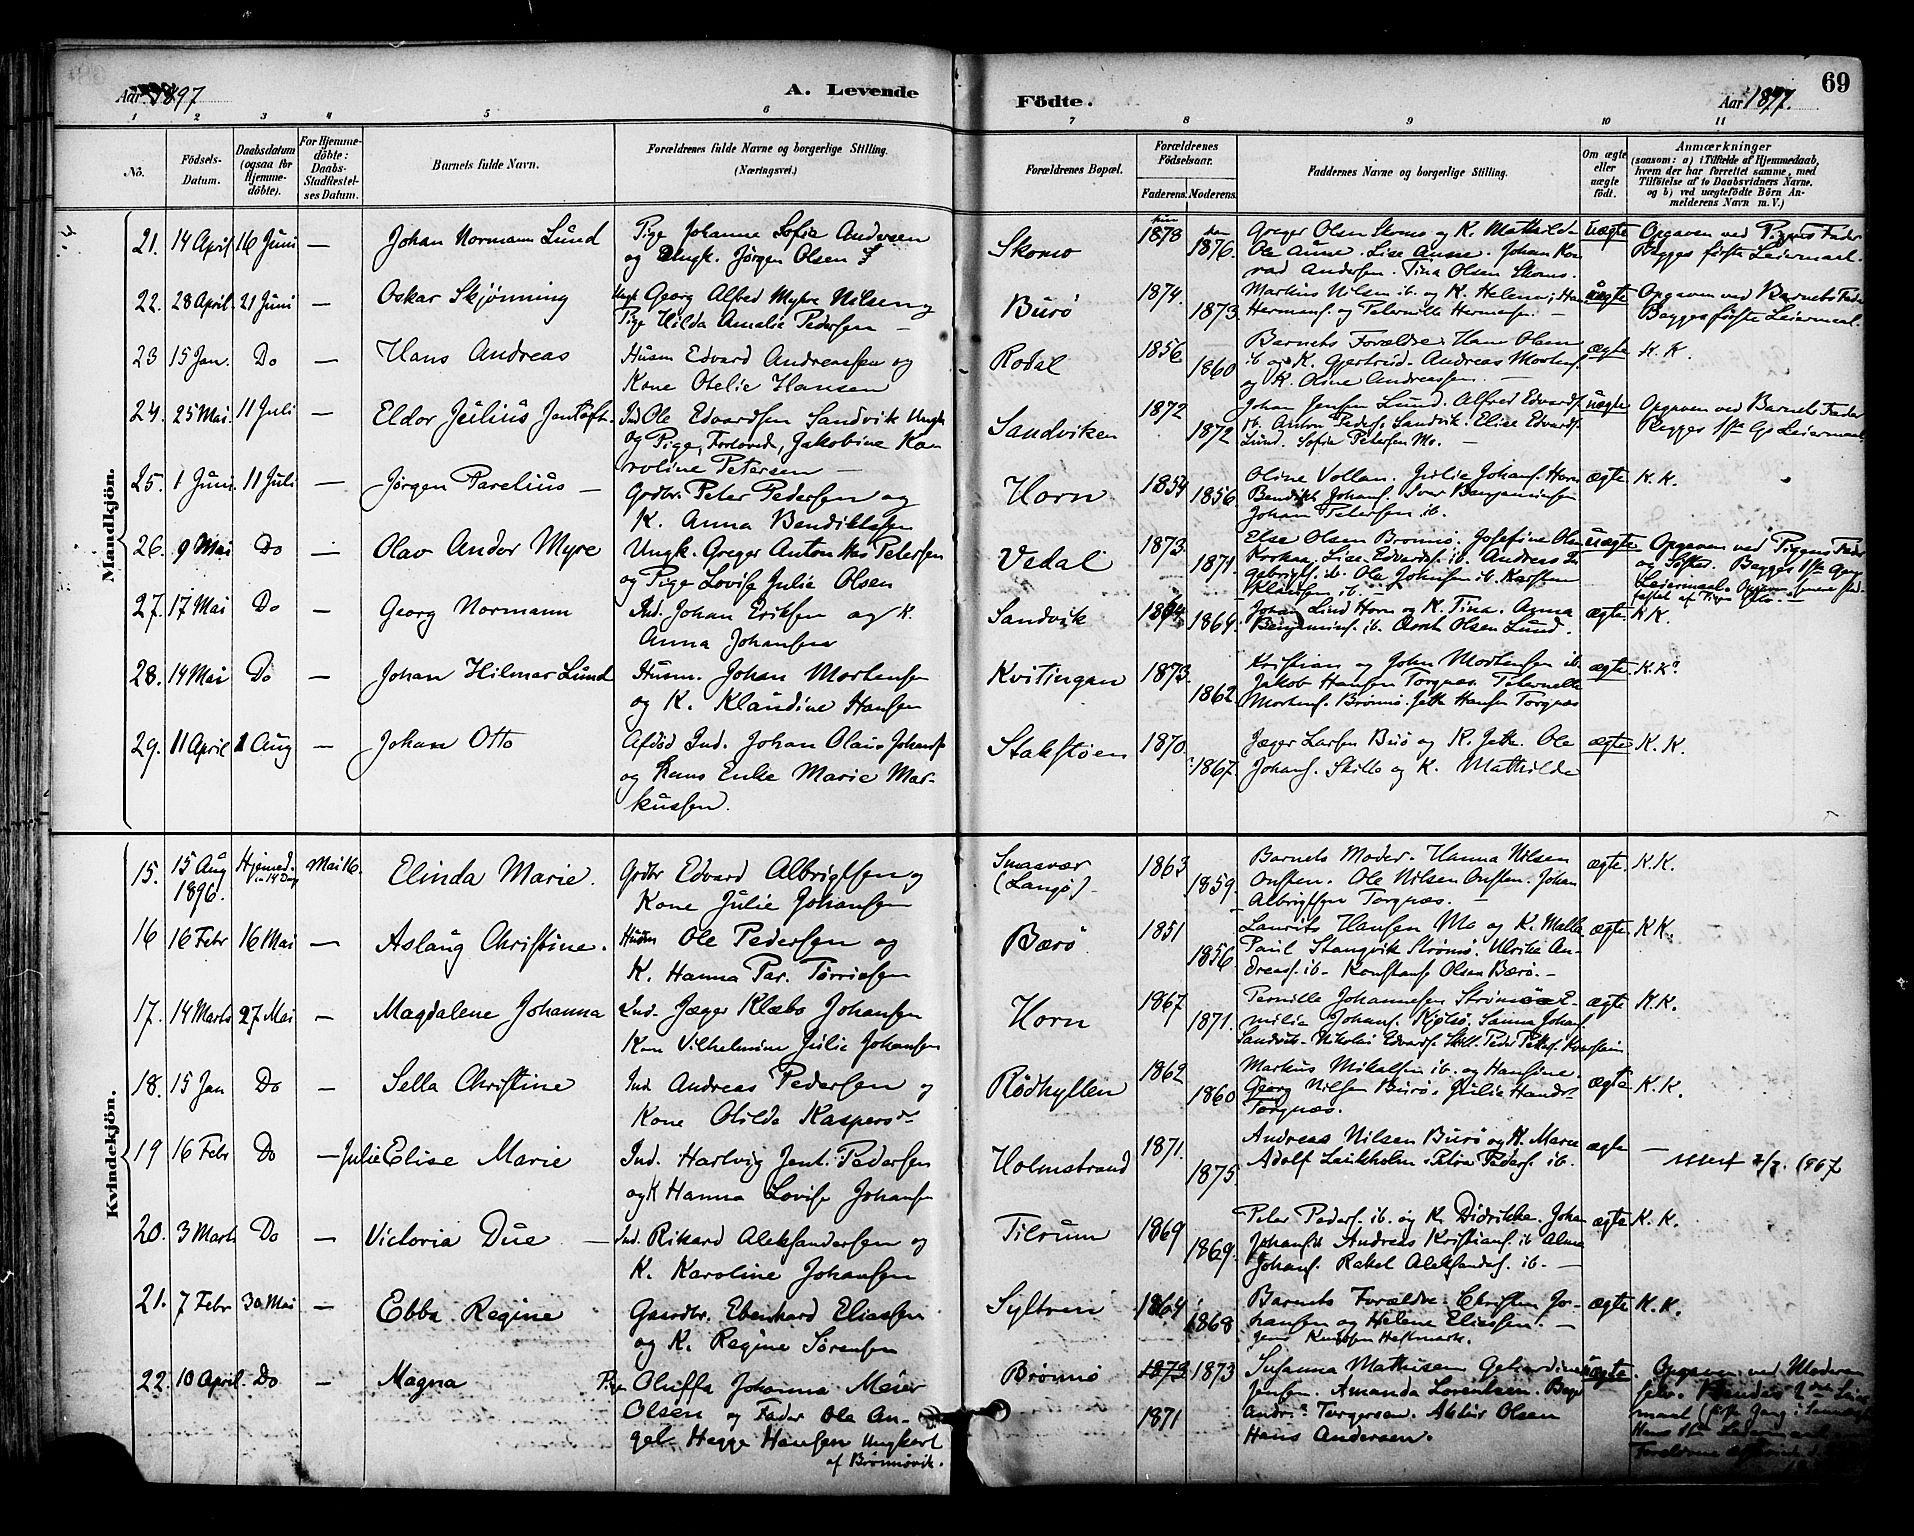 Aar 1897
A. Levende
Födte.
Aar 1897.
69
1 2 3 4 5 6 7 8 9 10 11
No.
Födsels-Datum.
Daabsdatum (ogsaa for Hjemme-döbte).
For Hjemme-döbte: Daabs-Stadfæstel-ses Datum.
Barnets fulde Navn.
Forældrenes fulde Navne og borgerlige Stilling. (Næringsvei.)
Forældrenes Bopæl.
Forældrenes Födselsaar.
Faderens. Moderens.
Faddernes Navne og borgerlige Stilling.
Om ægte eller uægte födt.
Anmærkninger
(saasom: a) i Tilfælde af Hjemmedaab,
hvem der har forrettet samme, med
Tilföielse af to Daabsvidners Navne.
og b) ved uægtefödte Börn An-
melderens Navn m. V.)
Mandkjön.
21. 14 April 16 Juni — Johan Normann Lund
Pige Johanne Sofie Andersen
og Ungk. Jörgen Olsen
Skomo 1878 1876.
Greger Olsen Skomo og K. Mathild
Ole Aune. Lise Aune. Johan Kon
rad Andersen. Tina Olsen Skomo.
uægte Opgaven ved Pigens Fader
Begges første Leiermaal.
22. 28 April 21 Juni — Oskar Skjønning
Ungk Georg Alfred Myhre Nilsen og
Pige Hilda Amalie Pedersen —
Burø 1874. 1873.
Markus Nilsen ib. og K. Helene; Hans
Hermans. og Peternille Hermansen. —
uægte Opgaven ved Barnets Fader
Begges første Leiermaal.
23 15 Jan. Do — Hans Andreas
Husm Edvard Andreassen og
Kone Otelie Hansen
Rodal 1856 1860
Barnets Forældre. Hans Olsen
ib og K. Gjertrud. Andreas Mortens.
og K. Oline Andreassen. —
ægte K. K.
24. 25 Mai 11 Juli — Eldor Julius Jentoft
Ind Ole Edvardsen Sandvik Ungk
og Pige, Forlovede, Jakobine Ka
roline Petersen —
Sandviken 1872 1872
Johan Jensen Lund. Alfred Edvards.
ib. Anton Peders. Sandvik. Elise Edvards.
Lund. Sofie Petersen Mo. —
uægte Opgaven ved Barnets Fader
Begges 1ste Gs Leiermaal.
25. 1 Juni. 11 Juli — Jørgen Parelius —
Grdbr. Peter Pedersen og
K. Anna Bendiktsen
Horn 1854 1856.
Oline Vollan. Julie Johans. Horn
Bendikt Johans. Iver Benjaminsen
Johan Petersen ib.
ægte K. K.
26. 9 Mai Do — Olav Andor Myre
Ungk. Greger Anton Petersen
og Pige Lovise Julie Olsen
Vedal 1873. 1871.
Else Olsen Brønnø. Josefine Olsen
Lise Edvards. ib. Andreas In
gebrigts. ib. Ole Johnsen ib. Karsten
Klausen ib. —
uægte Opgaven ved Pigens Fader
og Søster. Begges 1ste Gangs
Leiermaal.
27. 17 Mai Do — Georg Normann
Ind. Johan Eriksen og K.
Anna Johansen
Sandvik 1864.
Johan Lund Horn og K. Tina. Anna
Benjamins. ib. Olsen Lund.
ægte K K.
28. 14 Mai Do — Johan Hilmar Lund
Husm. Johan Mortensen
og K. Klaudine Hansen
Kvitingan 1873. 1862.
Kristian og John Mortensen ib.
Jakob Hansen Torgnæs. Peternille
Mortens. Brønnø. Jette Hansen Torgnæs
ægte. K. K.
29. 11 April 1 Aug — Johan Otto
Afdød Ind. Johan Olaus Johans.
og Hans Enke Marie Mar-
kussen.
Stakstøen 1870. 1867.
Jæger Larsen Burø og K. Jette. Ole
Johans. Skille og K. Mathilde
ægte K. K.
Kvindekjön.
15. 15 Aug 1896. Hjemmed. Mai 16. Elinda Marie.
Grdbr Edvard Albrigtsen og
Kone Julie Johansen
Smaavær (Langø) 1863 1859.
Barnets Moder. Hanna Nilsen
Onsten. Ole Nilsen Onsten. Johan
Albrigtsen Torgnæs.
ægte. K. K.
16 16 Febr 16 Mai — Aslaug Christine.
Husm Ole Pedersen og
K. Hanna Par. Torrisen
Bærø 1851 1856
Laurits Hansen Mo og K. Malla
Paul Stangvik Strømø. Ulrikke An-
dreas. ib — Konstanse Olsen Bærø. —
ægte. K K.
17. 14 Marts 27 Mai — Magdalene Johanna
Ind. Jæger Klæbo Johansen
Kone Vilhelmine Julie Johansen
Horn 1867 1871.
Pernille Johannesen Strømø E-
milie Johans. Kjølsø. Sanna Johans.
Sandvik. Nikolai Edvards. Skill.
ægte K. K.
18. 15 Jan Do — Sella Christine
Ind Andreas Pedersen og
Kone Olilda Kaspersdr
Rødhyllen 1862 1860
Markus Mikalsen ib. og Hansine.
Georg Nilsen Burø. Julie Hansdr
Torgnæs.
ægte K. K.
19 16 Febr Do — Julie Elise Marie
Ind. Hartvig Jent. Pedersen
og K Hanna Lovise Johansen
Holmstrand 1871. 1875.
Andreas Nilsen Burø og K. Marie
Adolf Laukholm. Petra Peders. ib.
ægte — 1967
20. 3 Marts Do — Victoria Due —
Ind. Rikard Aleksandersen og
K. Karoline Johansen
Tilrum 1869 1869.
Peter Peders. ib. og K. Didrikke. Johan
Johans. Andreas Kristians. ib Alma
Johans. Rakel Aleksanders. ib. —
ægte K. K.
21. 7 Febr 30 Mai — Ebba Regine
Gaardbr. Ebenhard Eliassen
og K. Regine Sørensen
Syltern 1864 1868
Barnets Forældre. Christen Jo-
hansen og Helene Eliassen. —
Jens Knudsen Hestmark.
ægte K. K.
22. 10 April. Do — Magna
Pige Oluffa Johanna Meier
Olsen og Fader Ole An-
gel Hegge Hansen Ungkarl
af Brønnøvik.
Brønnø 1873 1873 1871
Susanna Mathisen Gehardine
Jensen. Amanda Lorentsen.
Torgersen. Olsen
Hans Andersen.
uægte. Opgaven ved Moderen
selv. Hendes 2det Leier
maal